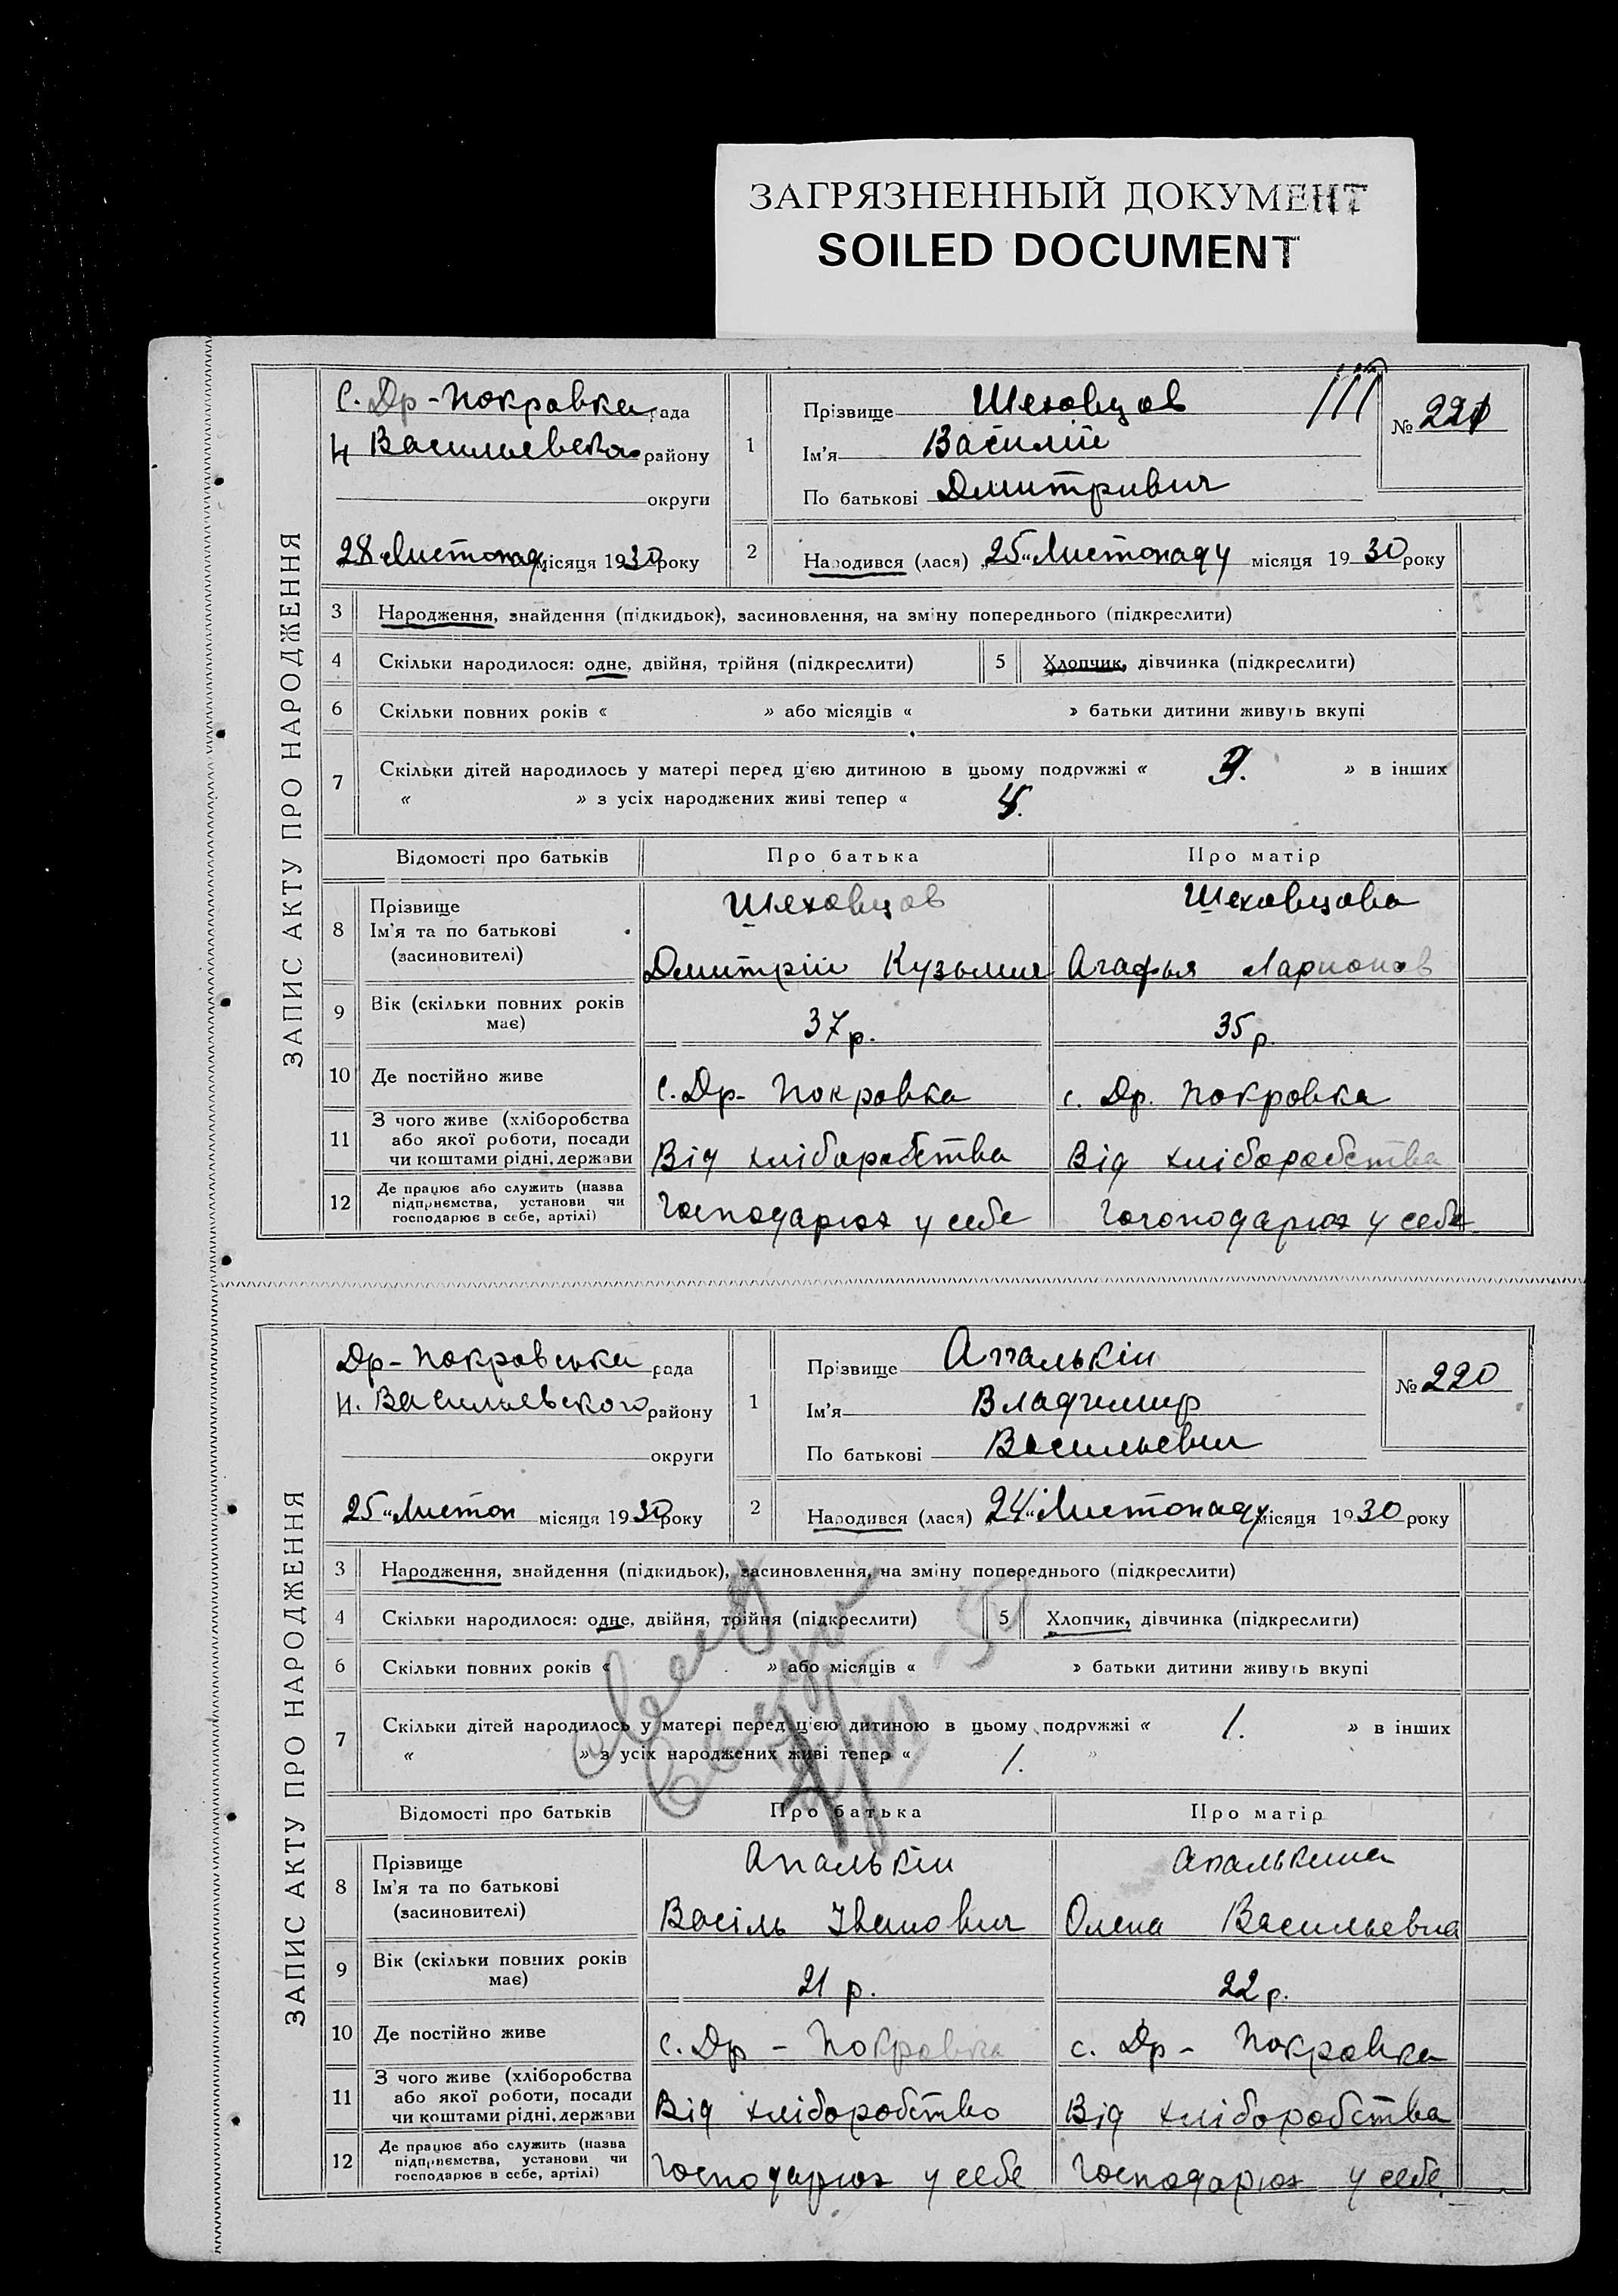 ЗАГРЯЗНЕННЫЙ ДОКУМЕНТ
SOILED DOCUMENT
ЗАПИС АКТУ ПРО НАРОДЖЕННЯ
С. Др-Покровка рада
Н Васильевска району
округи
28 „ Листопад місяця 1930 року
1
Прізвище Шеховцов
Ім'я Василій
По батькові Дмитривич
№ 221
2 Народився (лася) „25" Листопаду місяця 1930 року
3 Народження, знайдення (підкидьок), засиновлення, на зміну попереднього (підкреслити)
4 Скільки народилося: одне, двійня, трійня (підкреслити) 5 Хлопчик, дівчинка (підкреслити)
6 Скільки повних років « » або місяців « » батьки дитини живуть вкупі
7 Скільки дітей народилось у матері перед цією дитиною в цьому подружжі « 9. » в інших
« » з усіх народжених живі тепер « 4.
Відомості про батьків Про батька Про матір
8 Прізвище Ім'я та по батькові (засиновителі)
Шеховцов Шеховцова
Дмитрій Кузьмич Агафья Ларионов
9 Вік (скільки повних років має) 37 р. 35 р.
10 Де постійно живе с. Др- Покровка с. Др. Покровка
11 З чого живе (хліборобства або якої роботи, посади чи коштами рідні, держави Від хліборобства Від хліборобства
12 Де працює або служить (назва підприємства, установи чи господарює в себе, артілі) Господарюя у себе Гогоподарюя у себе
ЗАПИС АКТУ ПРО НАРОДЖЕННЯ
Др-Покровська рада
Н. Васильевского району
округи
25 „ Листоп місяця 1930 року
1
Прізвище Апалькін
Ім'я Владимир
По батькові Васильевич
№ 220
2 Народився (лася) 24" Листопаду місяця 1930 року
3 Народження, знайдення (підкидьок), засиновлення, на зміну попереднього (підкреслити)
4 Скільки народилося: одне, двійня, трійня (підкреслити) 5 Хлопчик, дівчинка (підкреслити)
6 Скільки повних років « » або місяців « » батьки дитини живуть вкупі
7 Скільки дітей народилось у матері перед цією дитиною в цьому подружжі « 1. » в інших
« » з усіх народжених живі тепер « 1. »
Відомості про батьків Про батька Про матір
8 Прізвище Ім'я та по батькові (засиновителі)
Апалькін Апалькина
Васіль Іванович Олена Васильевна
9 Вік (скільки повних років має) 21 р. 22 р.
10 Де постійно живе с. Др - Покровка с. Др - Покровка
11 З чого живе (хліборобства або якої роботи, посади чи коштами рідні, держави Від хліборобство Від хліборобства
12 Де працює або служить (назва підприємства, установи чи господарює в себе, артілі) Господарюя у себе Господарюя у себе.